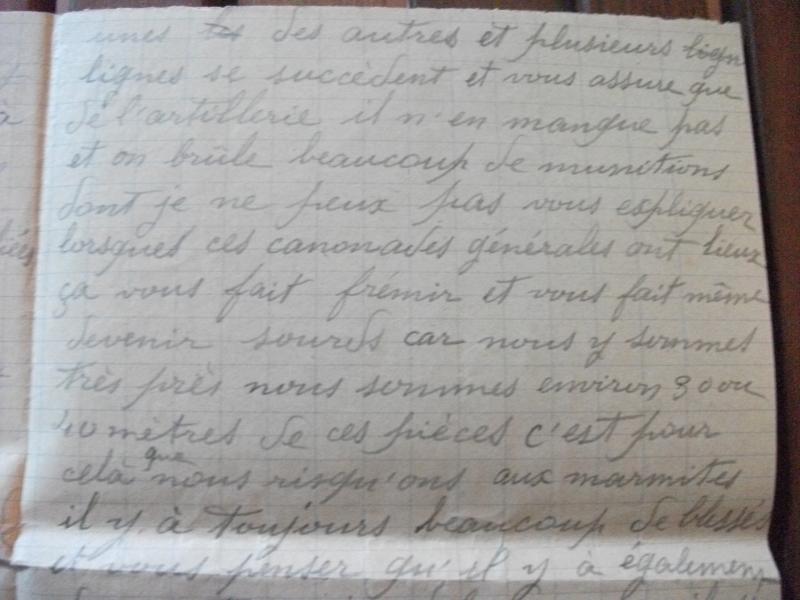 unes des autres et plusieurs lign
lignes se succèdent et vous assure que
de l'artillerie il n'en manque pas
et on brûle beaucoup de munitions
dont je ne peux pas vous expliquer
lorsques ces canonades générales ont lieux
ça vous fait frémir et vous fait même
devenir sourds car nous y sommes
très près nous sommes environ 30 ou
40 mètres de ces pièces c'est pour
celà que nous risqu'ons aux marmites
il y à toujours beaucoup de blessés
et vous penser qu'il y à également